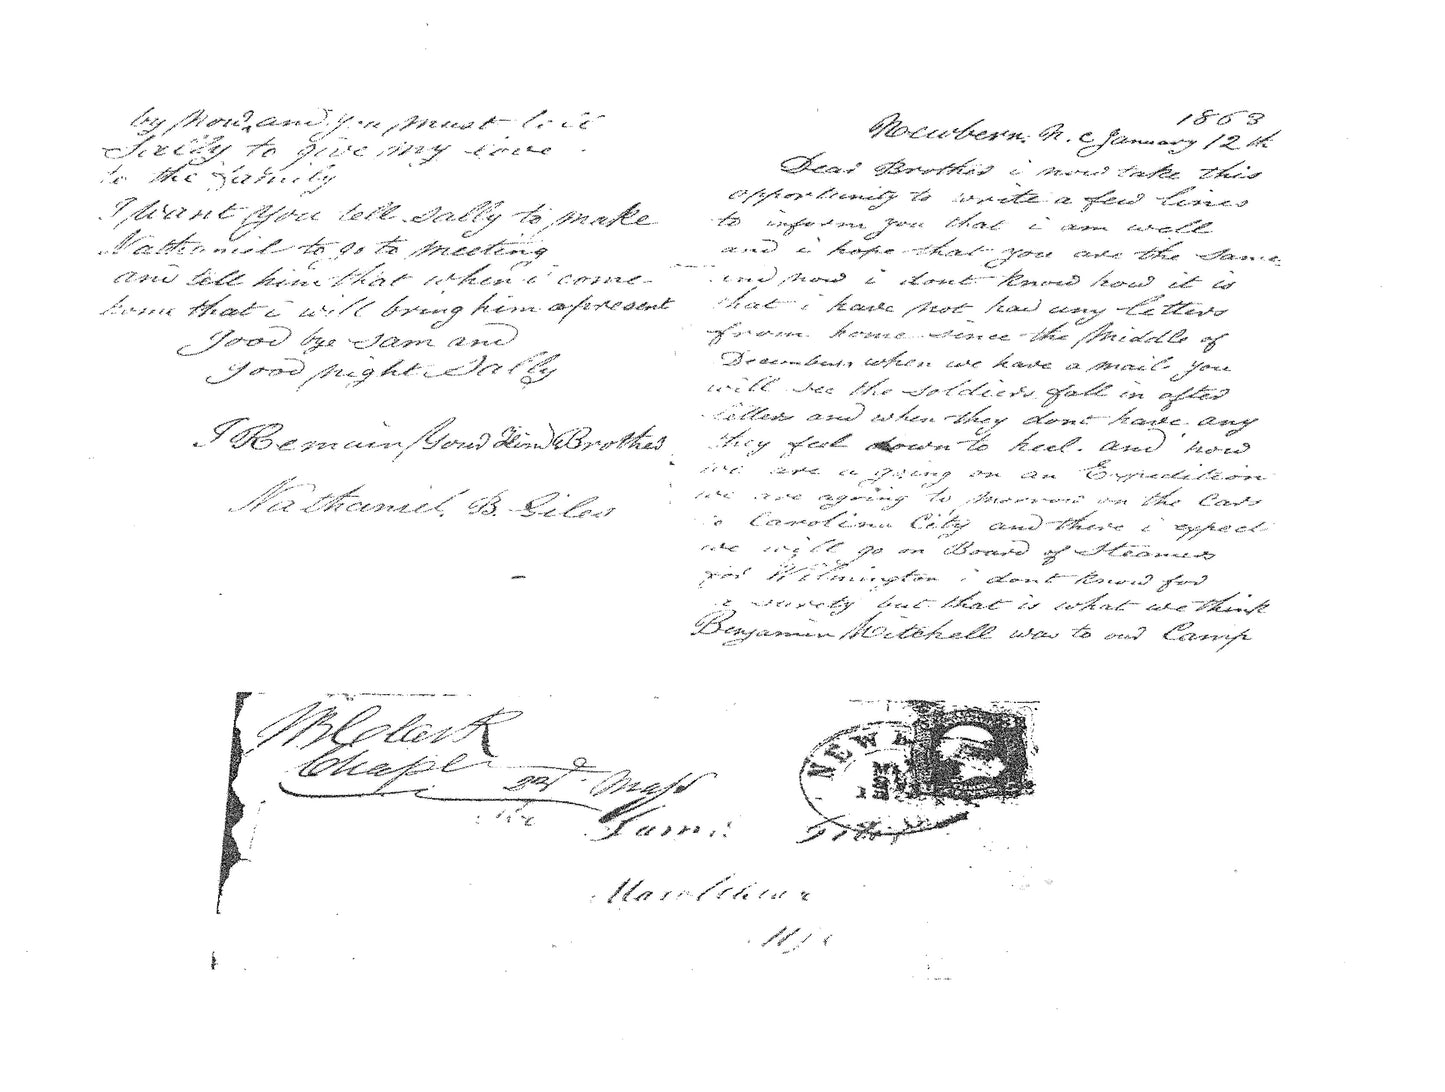 1863
Newbern. N. C January 12 th
Dear Brother i now take this
opportunity to write a few lines
to inform you that i am well
and i hope that you are the same
and now i dont know how it is
that i have not had any letters
from home since the middle of
December when we have a mail you
will see the soldiers fall in after
letters and when they dont have any
they feel down to heel. and now
we are a going on an Expedition
we are agoing to morrow on the Cars
to Carolina City and there i expect
we will go on Board of Steamers
for Wilmington i dont know for
a surety but that is what we think
Benjamin Mitchell was to our Camp
by now, and you must
to give my love
to the family
I want you tell Sally to make
Nathaniel to go to meeting
and tell him that when i come
home that i will bring him a present
Good bye Sam and
good night Sally
I Remain Your Kind Brother
Nathaniel. B. Giles
Clark
Chapln 23d. Mass
NEW
Saml Giles
Marblehead